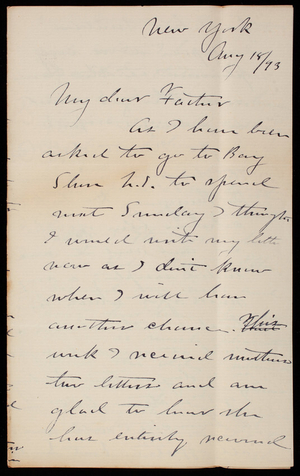 New York
Aug 18/93
My dear Father
As I have been
asked to go to Bay
Shore L.I. to spend
next Sunday I thought
I would write my letter
now as I don't know
when I will have
another chance. This
week I received mothers
two letters and am
glad to hear she
has entirely recovered